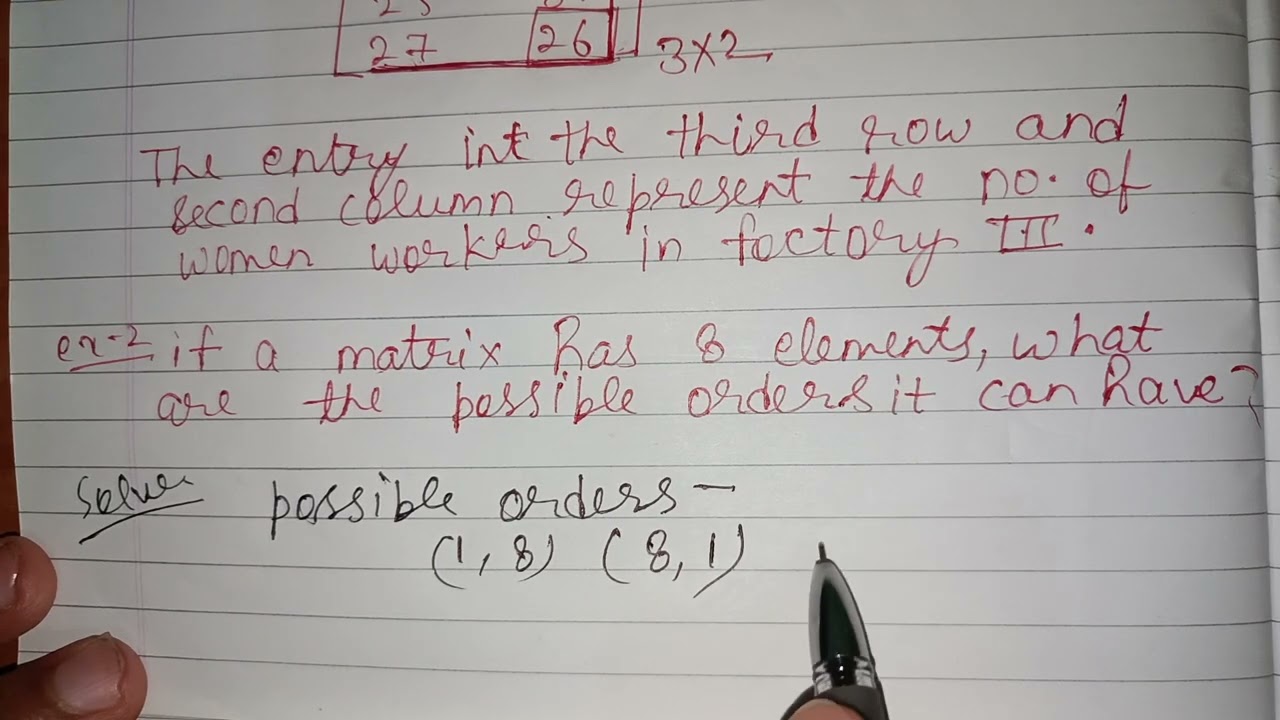 27 26
3×2
The entry int the third row and
second column represent the no. of
women workers in factory III.
ex-2 if a matrix has 8 elements, what
are the possible orders it can have?
Solve possible orders –
(1, 8) (8, 1)